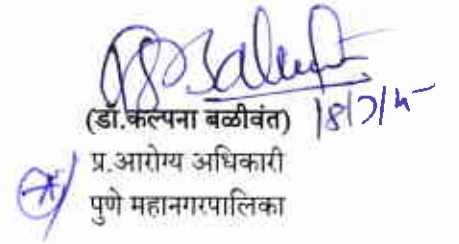 (डॉ.कल्पना बळीवंत)
प्र.आरोग्य अधिकारी
पुणे महानगरपालिका